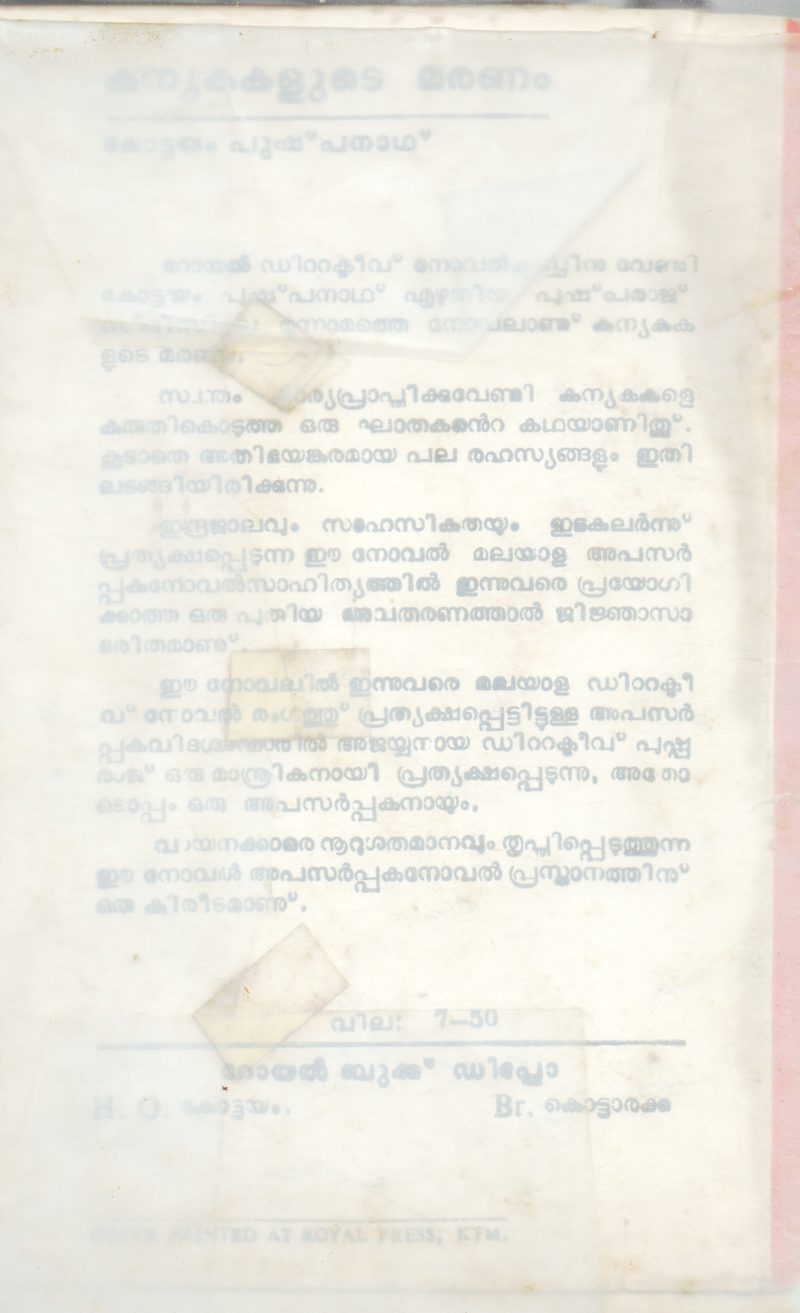 കന്യകകളുടെ മരണം
കോട്ടയം പുഷ്പനാഥ്
റോയൽ ഡിററക്ടീവ് നോവൽക്ലബ്ബിനു വേണ്ടി
കോട്ടയം പുഷ്പനാഥ് എഴുതിയ പുഷ്പരാജ്
സീരിസിലെ മൂന്നാമത്തെ നോവലാണു് കന്യകക
ളുടെ മരണം.
സ്വന്തം കാര്യപ്രാപ്തിക്കുവേണ്ടി കന്യകകളെ
കുരുതികൊടുത്ത ഒരു ഘാതകൻെറ കഥയാണിതു്.
കൂടാതെ അതിഭയങ്കരമായ പല രഹസ്യങ്ങളും ഇതി
ലടങ്ങിയിരിക്കുന്നു.
ഇന്ദ്രജാലവും സാഹസികതയും ഇടകലർന്നു്
പ്രത്യക്ഷപ്പെടുന്ന ഈ നോവൽ മലയാള അപസർ
പ്പകനോവൽസാഹിത്യത്തിൽ ഇന്നുവരെ പ്രയോഗി
ക്കാത്ത ഒരു പുതിയ അവതരണത്താൽ ജിജ്ഞാസാ
ഭരിതമാണു്.
ഈ നോവലിൽ ഇന്നുവരെ മലയാള ഡിററക്ടീ
വ് നോവൽ രംഗത്തു് പ്രത്യക്ഷപ്പെട്ടിട്ടുള്ള അപസർ
പ്പകവിദഗ്ദ്ധന്മാരിൽ അജയ്യനായ ഡിററക്ടീവ് പുഷ്പ
രാജ് ഒരു മാന്ത്രികനായി പ്രത്യക്ഷപ്പെടുന്നു, അതോ
ടൊപ്പം ഒരു അപസർപ്പകനായും.
വായനക്കാരെ നൂറുശതമാനവും തൃപ്തിപ്പെടുത്തുന്ന
ഈ നോവൽ അപസർപ്പകനോവൽ പ്രസ്ഥാനത്തിനു്
ഒരു കിരീടമാണു്.
വില: 7—50
റോയൽ ബുക്ക് ഡിപ്പോ
H. O. കോട്ടയം. Br. കൊട്ടാരക്കര
COVER PRINTED AT ROYAL PRESS, KTM.